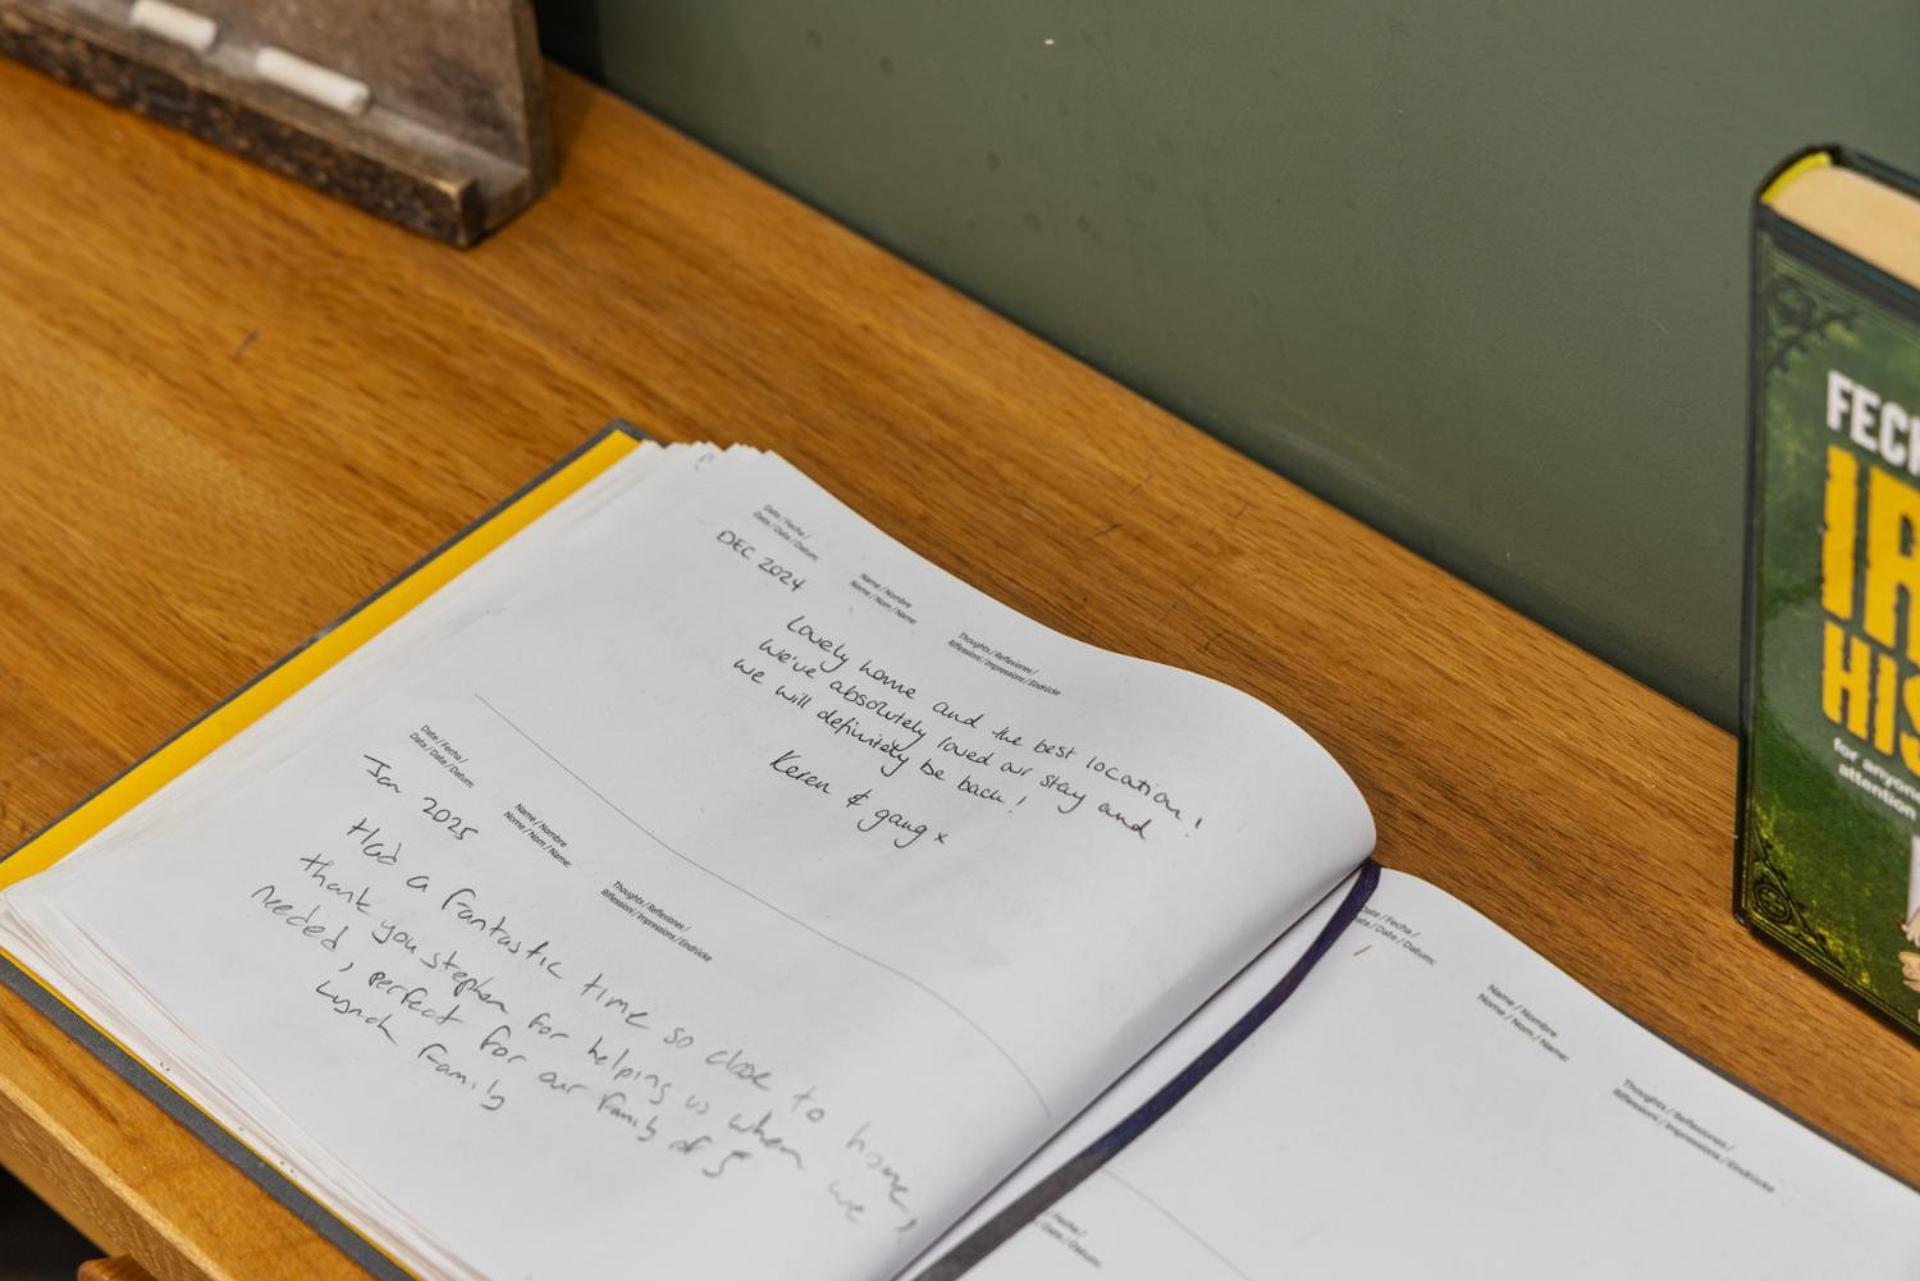 Date / Fecha /
Data / Date / Datum:
DEC 2024
Name / Nombre
Nome / Nom / Name:
Thoughts / Reflexiones /
Riflessioni / Impressions / Eindrücke
Lovely home and the best location!
We've absolutely loved our stay and
we will definitely be back!
Keren & gang x
Date / Fecha /
Data / Date / Datum:
Jan 2025
Name / Nombre
Nome / Nom / Name:
Thoughts / Reflexiones /
Riflessioni / Impressions / Eindrücke
Had a fantastic time so close to home,
thank you stephen for helping us when we
needed, perfect for our family of 5
Lynch Family
Date / Fecha /
Data / Date / Datum:
Name / Nombre
Nome / Nom / Name:
Thoughts / Reflexiones /
Riflessioni / Impressions / Eindrücke
Fecha /
Date / Datum:
FECK
IR
HIS
for anyone
attention